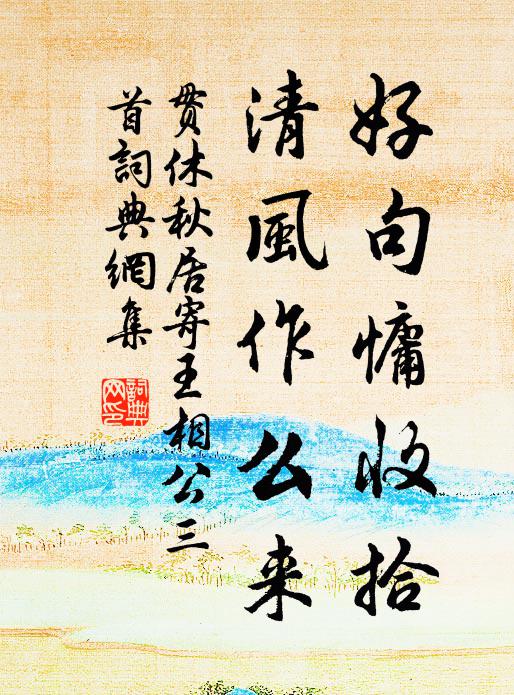 好句慵收拾
清風作么来
贯休秋居寄王相公三
首詞典網集
詞典
网印